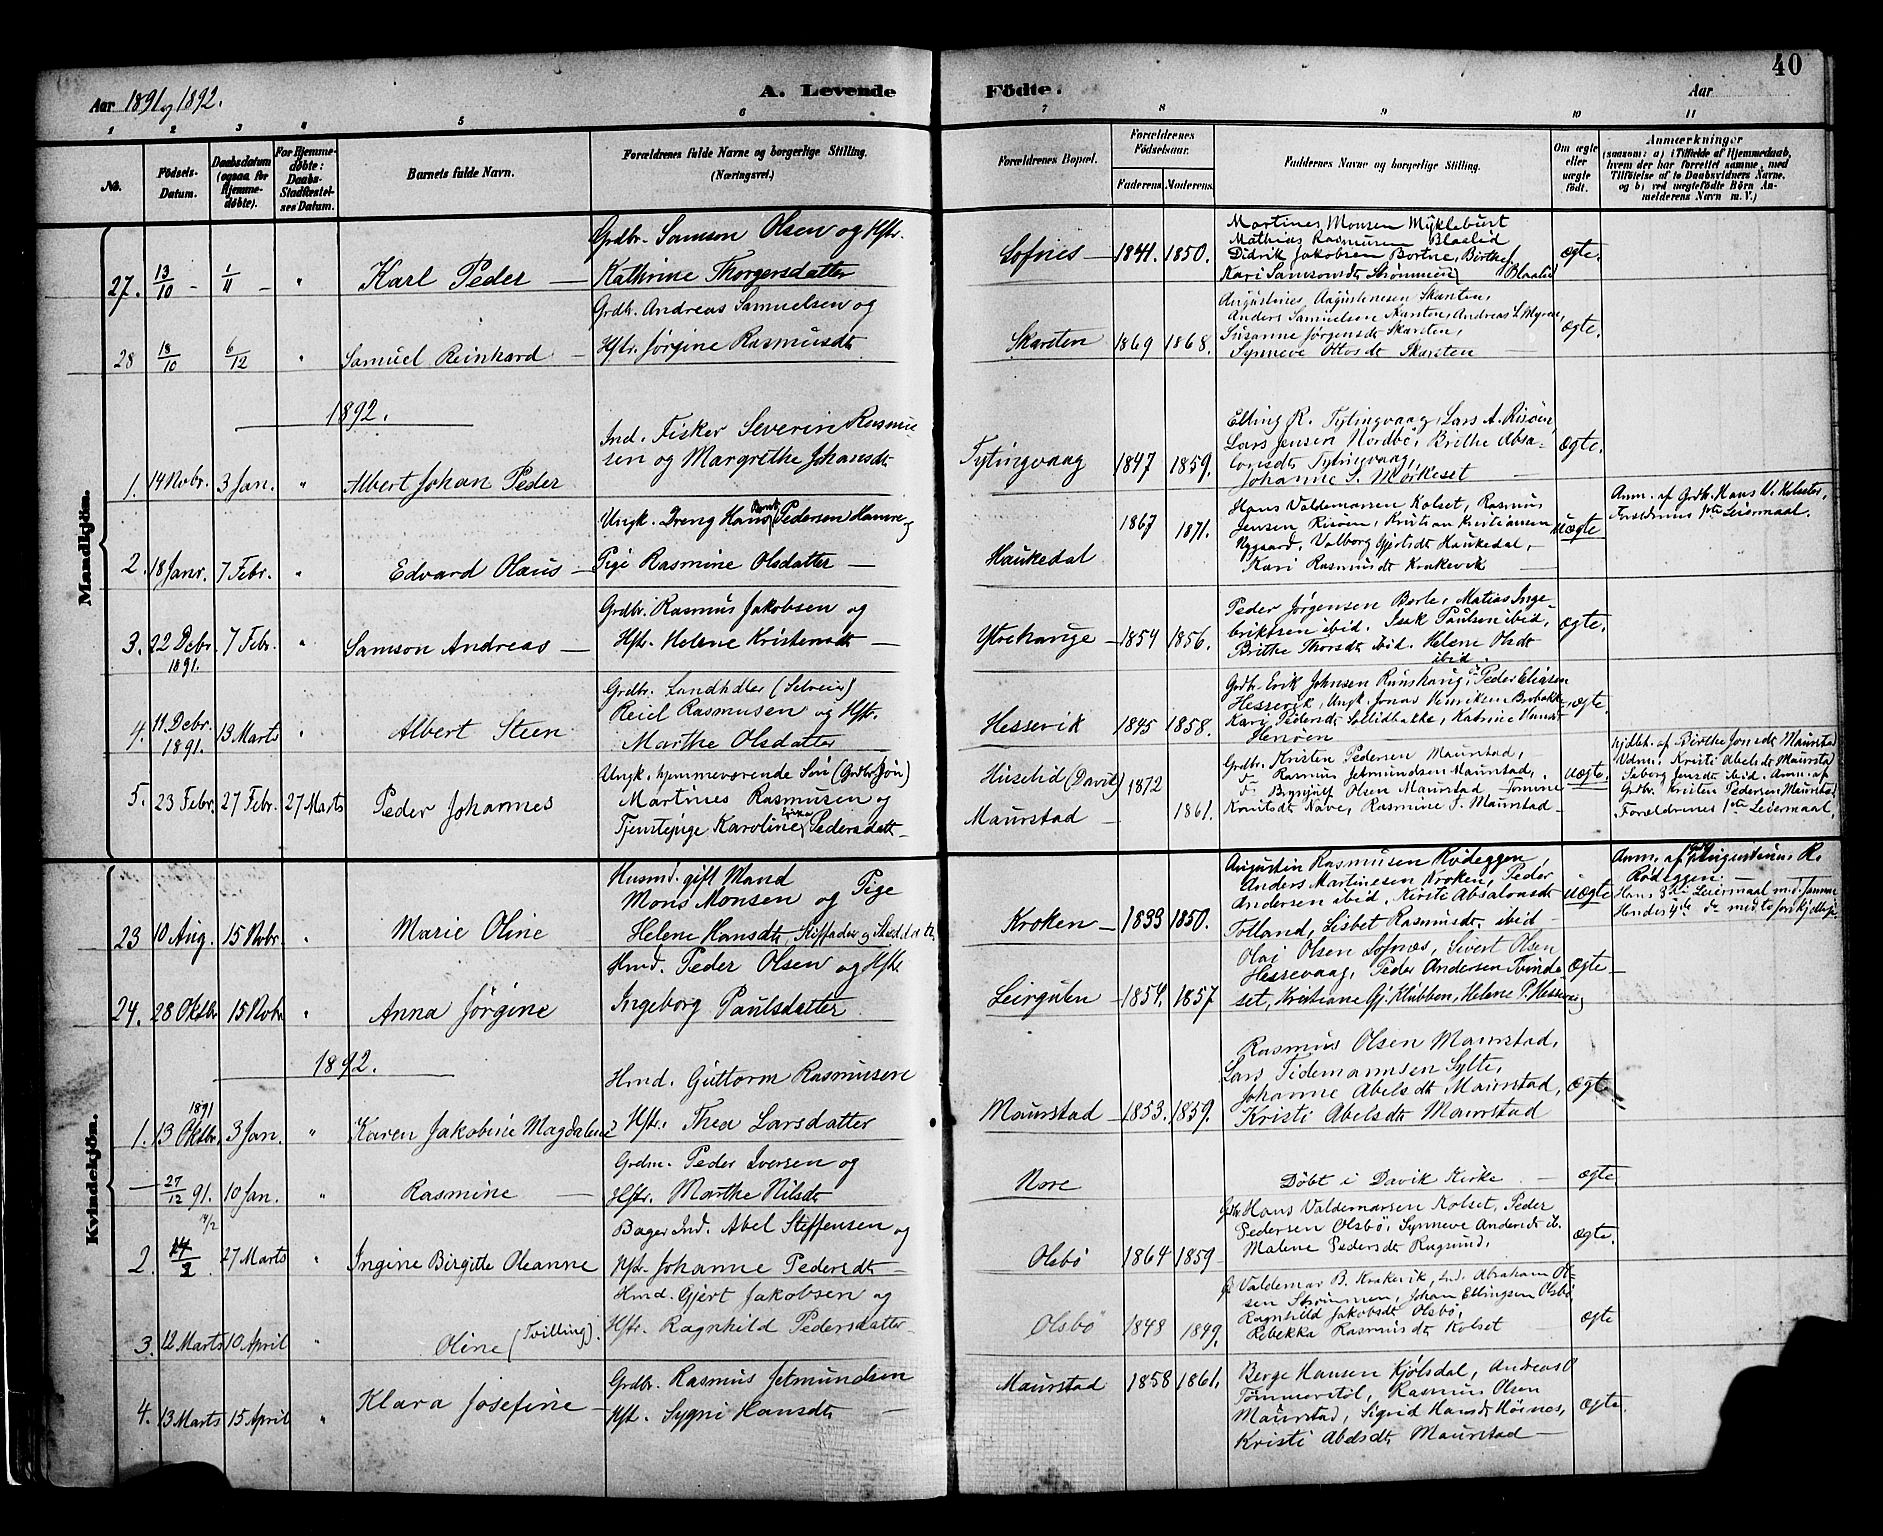 40
Aar 1891 og 1892.
A. Levende
Födte.
Aar
1 2 3 4 5 6 7 8 9 10 11
No.
Födsels-
Datum.
Daabsdatum
(ogsaa for
Hjemme-
döbte).
For Hjemme-
döbte:
Daabs-
Stadfæstel-
ses Datum.
Barnets fulde Navn.
Forældrenes fulde Navne og borgerlige Stilling.
(Næringsvei.)
Forældrenes Bopæl.
Forældrenes
Födselsaar.
Faderens.
Moderens.
Faddernes Navne og borgerlige Stilling.
Om ægte
eller
uægte
födt.
Anmærkninger
(saasom: a) i Tilfælde af Hjemmedaab,
hvem der har forrettet samme, med
Tilföielse af to Daabsvidners Navne.
og b) ved uægtefödte Börn An-
melderens Navn m. V.)
Mandkjön.
27. 13/10 - 1/11 - " Karl Peder —
Grdbr. Samson Olsen og Hstr.
Kathrine Thorgersdatter
Lofnes — 1841. 1850.
Martines Monsen Myklebust
Mathias Rasmusen Blaalid
Didrik Jakobsen Bortne, Birthe
Kari Samsonsdt Strømmen Blaalid
ægte.
28 18/10 6/12 " Samuel Reinhard —
Grdbr. Andreas Samuelsen og
Hstr. Jørgine Rasmusdt
Skarsten 1869 1868.
Augustines Augustinesen Skarsten,
Anders Samuelsen Karsten, Andreas S. Myren,
Susanne Jørgensdt Skarsten,
Synneve Ottosdt Skarsten —
ægte.
1892.
1. 14 Novbr. 3 Jan. " Albert Johan Peder
Ind. Fisker Severin Rasmu-
sen og Margrethe Johansdt
Tytingvaag 1847 1859.
Elling R. Tytingvaag, Lars A. Risöen,
Lars Jensen Nordbö, Brithe Absa-
lonsdt Tytingvaag,
Johanne S. Mørkeset —
ægte.
2. 18 Janr. 7 Febr. " Edvard Olaus —
Ungk. Dreng Hans Pedersen Hamre og
Pige Rasmine Olsdatter —
Haukedal 1867 1871.
Hans Valdemarsen Kolset, Rasmus
Jensen Risöen, Kristian Kristiansen
Nygaard, Valborg Gjertsdt Haukedal,
Kari Rasmusdt Krakevik —
uægte
Anm. af Grdbr. Hans V. Kolset,
Forældrenes 1ste Leiermaal.
3. 22 Decbr. 1891. 7 Febr. " Samson Andreas —
Grdbr. Rasmus Jakobsen og
Hstr. Helene Kristensdt —
Ytrehauge — 1854 1856.
Peder Jørgensen Berle, Matias Inge-
briktsen ibid. Isak Paulsen ibid,
Brithe Thorsdt ibid. Helene Olsdt
ibid.
ægte.
4. 11 Decbr. 1891. 13 Marts " Albert Steen
Grdbr. Landhdler (Selveier)
Reiel Rasmusen og Hstr.
Marthe Olsdatter
Hessevik 1845 1858.
Grdbr. Erik Johnsen Runshaug, Peder Eliasen
Hessevik, Ungk. Jonas Henriksen
Kari Pedersdt Sollidbakke, Katrine
Henöen
ægte.
5. 23 Febr. 27 Febr. 27 Marts Peder Johannes
Ungk. hjemmeværende Sön (Grdbr. Sön)
Martines Rasmusen og
Tjenstepige Karoline Pedersdatt.
Huselid (Davik) 1872
Maurstad — 1861.
Grdbr. Kristen Pedersen Maurstad,
do Rasmus Jetmundsen Maurstad,
do Brynjulf Olsen Maurstad
Knutsdt Nave, Rasmine T. Maurstad —
uægte.
hjdbt. af Birthe Jonsdt Maurstad
Vidne: Kristi Abelsdt Maurstad
Seborg Jensdt ibid. Anm. af
Grdbr. Kristen Pedersen Maurstad
Forældrenes 1ste Leiermaal.
Kvindekjön.
23 10 Aug. 15 Novbr. " Marie Oline
Husmd. gift Mand
Mons Monsen og Pige
Helene Hansdt,
Kroken — 1833 1850.
Augustin Rasmusen Rödeggen
Anders Martinesen Kroken, Peder
Andersen ibid, Kirsti Absalonsdt
Totland, Lisbet Rasmusdt ibid —
uægte
Anm. af Augustinus R.
Rödeggen. —
Hans 3die Leiermaal med samme
Hendes 4de do med to forskjellige
24. 28 Oktbr. 15 Novbr. " Anna Jörgine
Hmd. Peder Olsen og Hstr
Ingeborg Paulsdatter
Leirgulen — 1854. 1857
Olai Olsen Lofnæs, Sivert Olsen
Hessevaag, Peder Andersen Tvinde-
set, Kristiane Gj. Klubben, Helene P. Hessevig
ægte —
1892.
1. 13 Oktbr. 1891 3 Jan. " Karen Jakobine Magdalene
Hmd. Guttorm Rasmusen
Hstr. Thea Larsdatter
Maurstad — 1853. 1859.
Rasmus Olsen Maurstad,
Lars Tidemannsen Sylte,
Johanne Abelsdt Maurstad,
Kristi Abelsdt Maurstad
ægte
— 27/12 91. 10 Jan. " Rasmine —
Grdm. Peder Iversen og
Hstr. Marthe Nilsdt
Nore
Döbt i Davik Kirke —
ægte
2. 14/2 27 Marts " Ingine Birgitte Oleanne
Bager Ind. Abel Steffensen og
Hstr. Johanne Pedersdt —
Olsbö 1864 1859 —
Hans Valdemarsen Kolset, Peder
Pedersen Olsbö, Synneve Andersdt ib.
Malene Pedersdt Rugsund.
ægte.
3. 12 Marts 10 April " Oline (Tvilling).
Hmd. Gjert Jakobsen og
Hstr. Ragnhild Pedersdatter
Olsbö 1848 1849.
Valdemar B. Krakevik, Ind. Abraham Ol-
sen Strömmen, Johan Ellingsen Olsbö
Ragnhild Jakobsdt Olsbö,
Rebekka Rasmusdt Kolset
ægte
4. 13 Marts 15 April " Klara Josefine —
Grdbr. Rasmus Jetmundsen
Hstr. Sygni Hansdt —
Maurstad 1858 1861.
Berge Hansen Kjölsdal, Andreas O
Tömmerstöl, Rasmus Olsen
Maurstad, Sigrid Hansdt Höines,
Kristi Abelsdt Maurstad —
ægte.